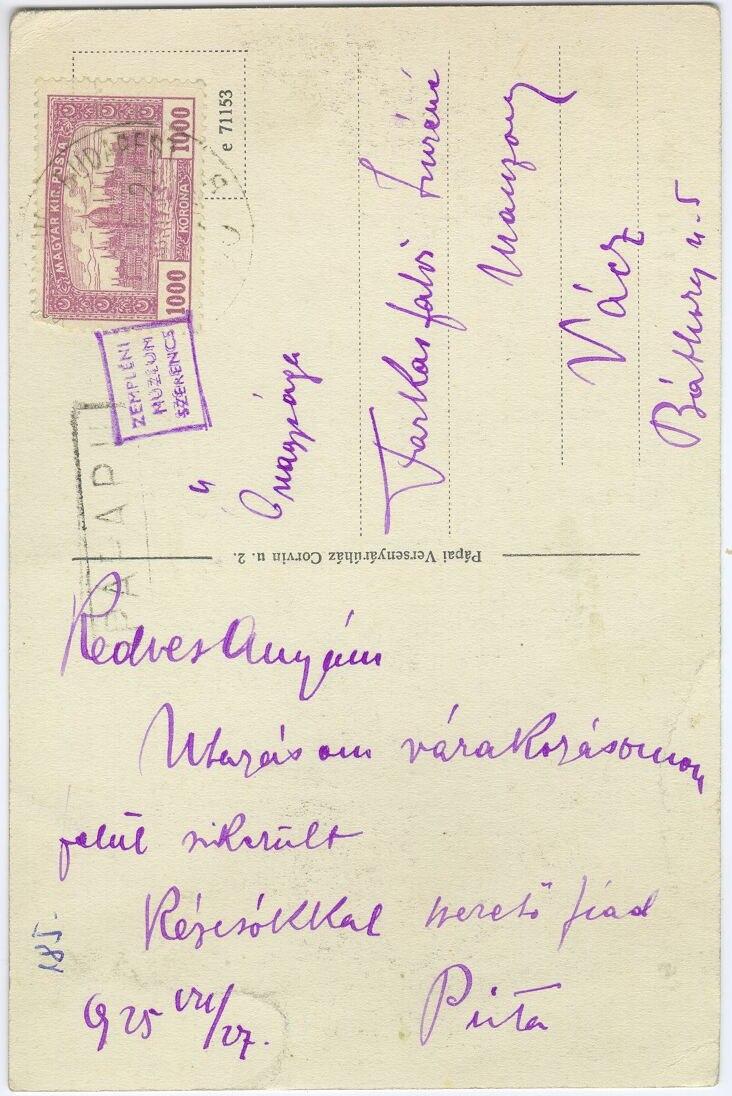 MAGYAR KIR. POSTA
1000
KORONA
1000
BUDAPEST
e 71153
ZEMPLÉNI
MÚZEUM
SZERENCS
Őnagysága
Farkasfalvi
Vácz
Báthory u. 5
Pápai Versenyáruház Corvin u. 2.
Kedves Anyám
Utazásom várakozásomon
felül sikerült
Kézcsókkal szerető fiad
Pista
925 VII/27.
185.